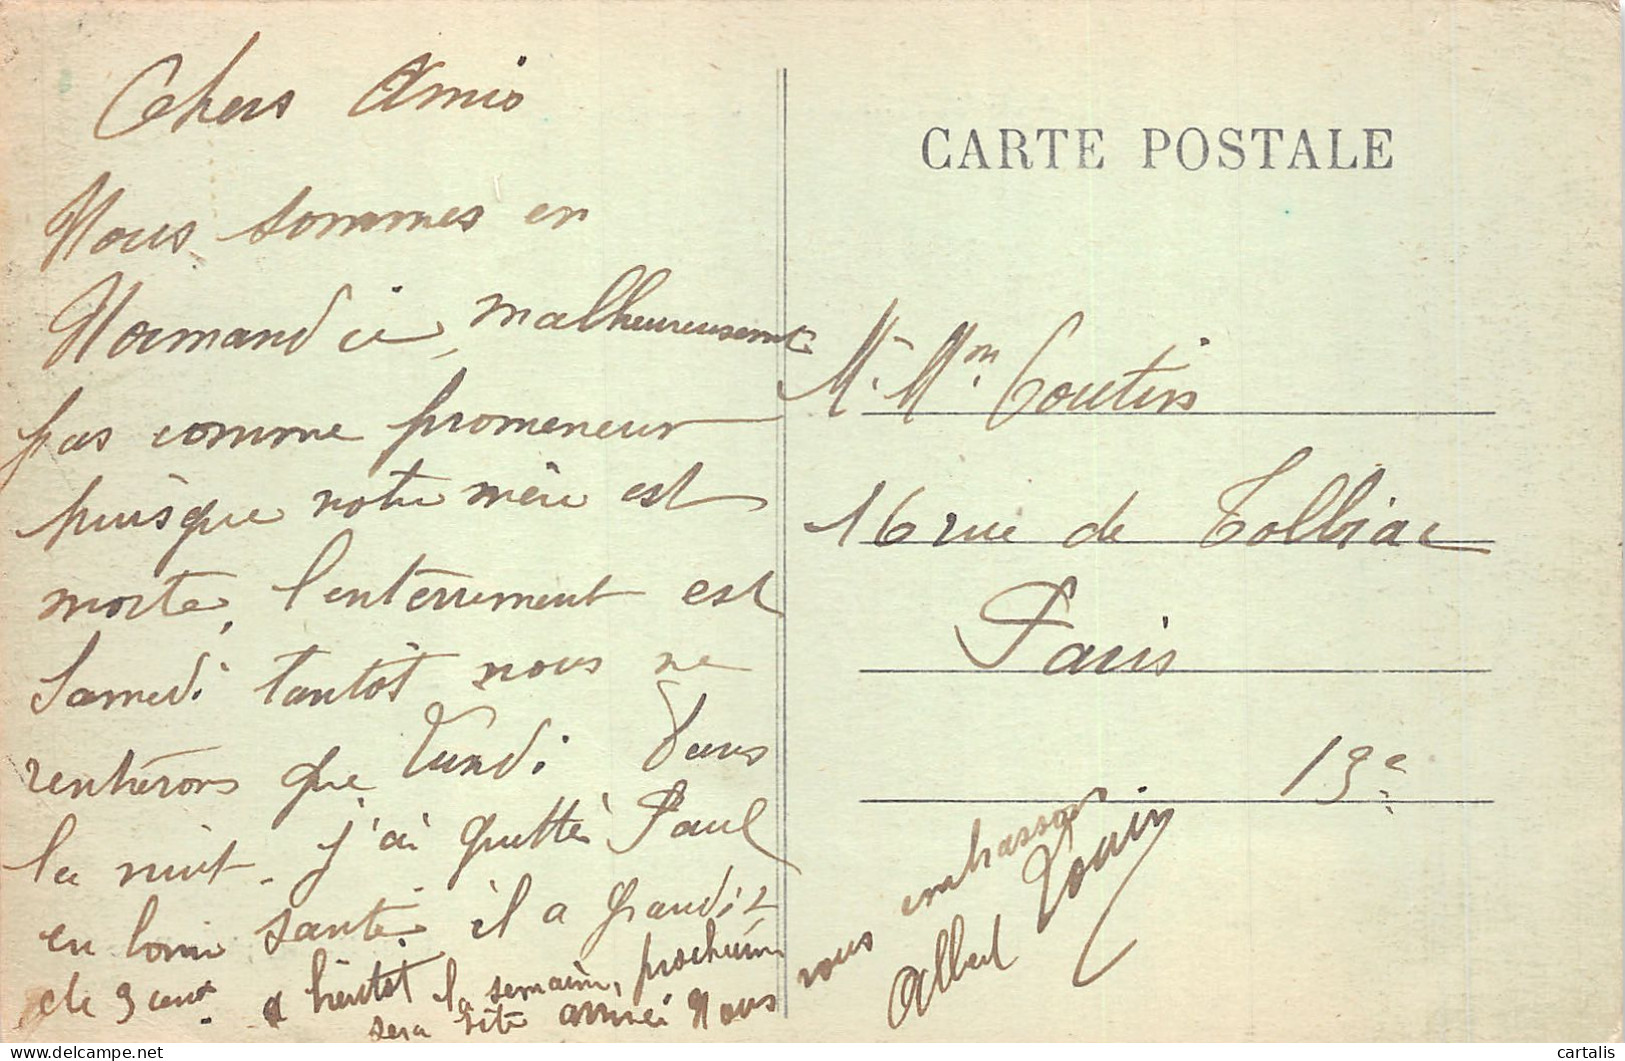 Chers Amis
Nous sommes en
Normandie, malheureusement
pas comme promeneur
puisque notre mère est
morte, l'enterrement est
Samedi tantôt nous ne
rentrerons que Lundi dans
la nuit. j'ai quitté Paul
en bonne santé il a grandit
de 3 cent. a bientot la semaine prochaine
sera vite arrivé Nous
vous embrassons
Albert
CARTE POSTALE
Mr. Mm. Coutin
16 rue de Tolbiac
Paris
13e
cartalis